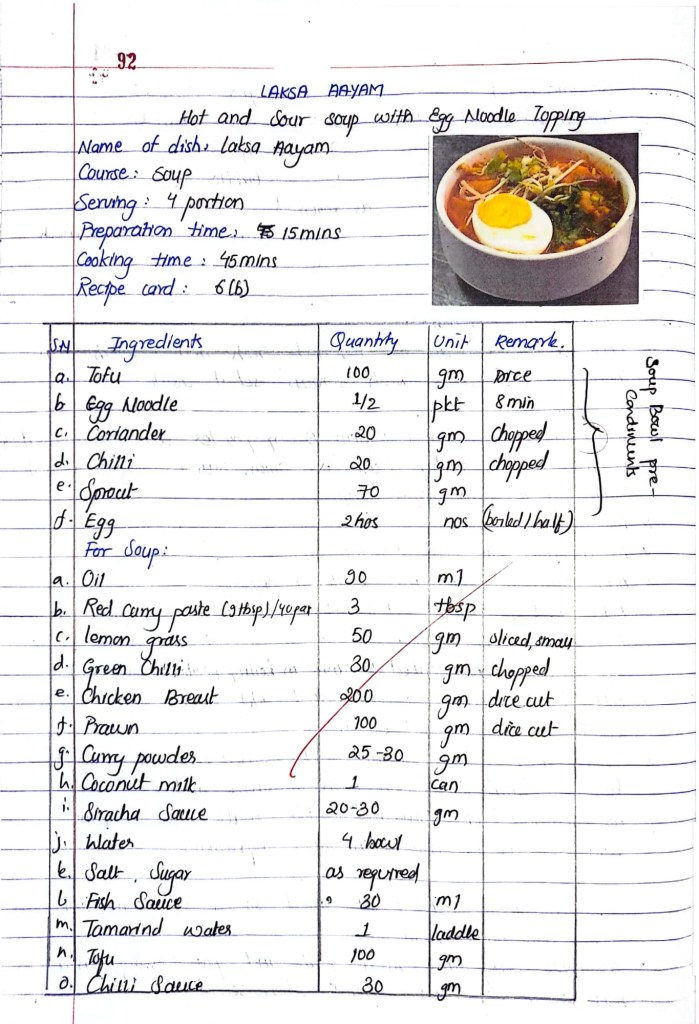 92
LAKSA AAYAM
Hot and Sour soup with Egg Noodle Topping
Name of dish: Laksa Aayam
Course: Soup
Serving: 4 portion
Preparation time: 15mins
Cooking time: 45mins
Recipe card: 6(b)
SN Ingredients Quantity Unit Remark.
a. Tofu 100 gm Dice
b Egg Noodle 1/2 pkt 8min
c. Coriander 20 gm Chopped
d. Chilli 20 gm chopped
e. Sprout 70 gm
f. Egg 2nos nos (boiled/half)
Soup Bowl pre-
Condiments
For Soup:
a. Oil 90 ml
b. Red curry paste 3 tbsp
c. lemon grass 50 gm sliced, small
d. Green Chilli 30 gm chopped
e. Chicken Breast 200 gm dice cut
f. Prawn 100 gm dice cut
g. Curry powder 25-30 gm
h. Coconut milk 1 can
i. Siracha Sauce 20-30 gm
j. Water 4 bowl
k. Salt, Sugar as required
l. Fish Sauce 30 ml
m. Tamarind water 1 laddle
n. Tofu 100 gm
o. Chilli Sauce 30 gm